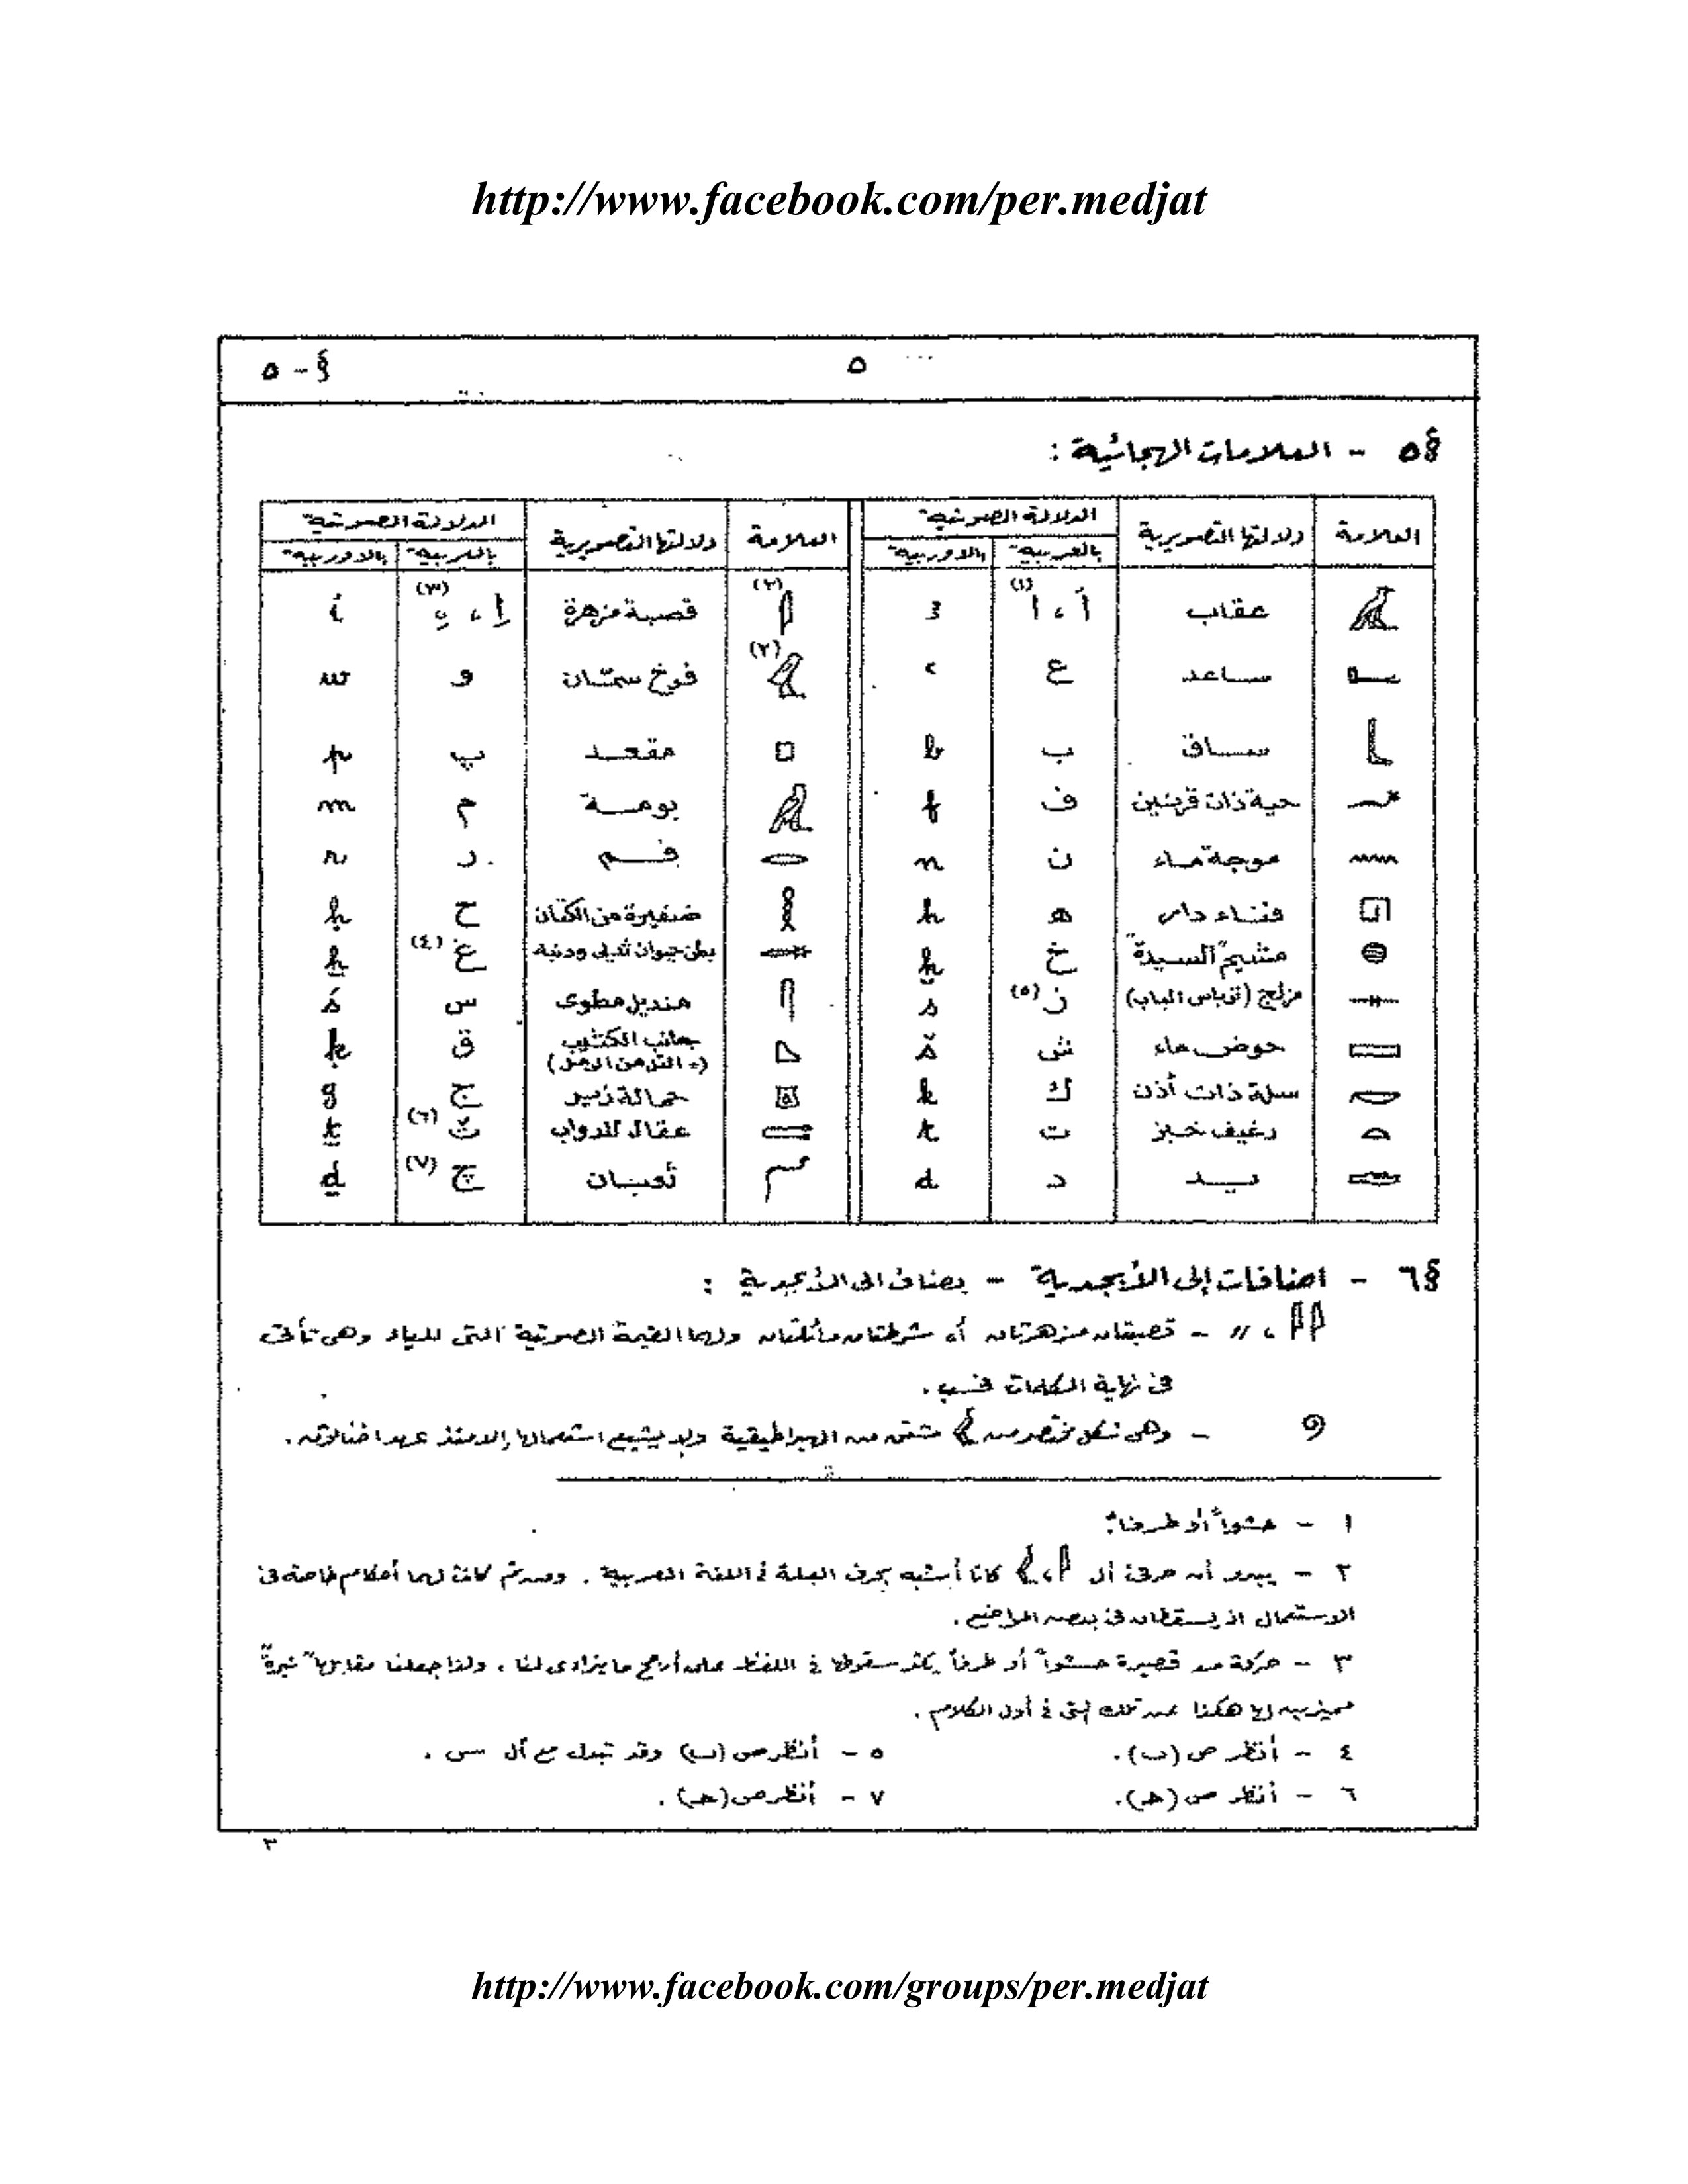 http://www.facebook.com/per.medjat
٥
§ - ٥
§٥ - العلامات الهجائية :
العلامة | دلالتها التصويرية | الدلالة الصوتية بالعربية | بالاوربية | العلامة | دلالتها التصويرية | الدلالة الصوتية بالعربية | بالاوربية
𓄿 | عقاب | أ ، ا (١) | ꜣ | 𓇋 (٢) | قصبة مزهرة | إ ، ـِ (٣) | ỉ
𓂝 | ساعد | ع | ꜥ | 𓅱 (٢) | فرخ سمّان | و | w
𓃀 | ساق | ب | b | 𓊪 | مقعد | پ | p
𓆑 | حية ذات قرنين | ف | f | 𓅓 | بومة | م | m
𓈖 | موجة ماء | ن | n | 𓂋 | فم | ر | r
𓉔 | فناء دار | ه | h | 𓎛 | ضفيرة من الكتان | ح | ḥ
𓐍 | مشيم "السيدة" | خ | ḫ | 𓄡 | بطن حيوان ثديى وذنبه | غ (٤) | ẖ
𓊃 | مزلج (ترباس الباب) | ز (٥) | s | 𓋴 | منديل مطوى | س | ś
𓈙 | حوض ماء | ش | š | 𓈎 | جانب الكثيب (= التل من الرمل) | ق | ḳ
𓎡 | سلة ذات أذن | ك | k | 𓎼 | حمالة زير | ج | g
𓏏 | رغيف خبز | ت | t | 𓍿 | عقال للدواب | ث (٦) | ṯ
𓂧 | يد | د | d | 𓆓 | ثعبان | چ (٧) | ḏ
§٦ - اضافات إلى الأبجدية - يضاف الى الأبجدية :
𓇋𓇋 ، \\ - قصبتان مزهرتان أو شرطتان مائلتان ولهما القيمة الصوتية التى للياء وهى تأتى
فى نهاية الكلمات فحسب .
𓏲 - وهى شكل مختصر من 𓅱 مشتق من الهيراطيقية ولم يشيع استعمالها إلا منذ عهد
١ - حشواً أو طرفاً .
٢ - يبدو أن حرفى أل 𓇋 ، 𓅱 كانا أشبه بحرف العلة فى اللغة العربية . ومن ثم كانت لهما أحكام خاصة فى
الاستعمال اذ يسقطان فى بعض المواضع .
٣ - حركة مد قصيرة حشواً أو طرفاً يكثر سقوطها فى اللفظ على أرجح ما يتراءى لنا . ولذا جعلنا مقابلها "نبرة"
مميزين إياها هكذا عن تلك التى فى أول الكلام .
٤ - أنظر ص (ب) .
٥ - أنظر ص (ب) وقد تبدل مع أل س .
٦ - أنظر ص (هـ) .
٧ - أنظر ص (هـ) .
٣
http://www.facebook.com/groups/per.medjat